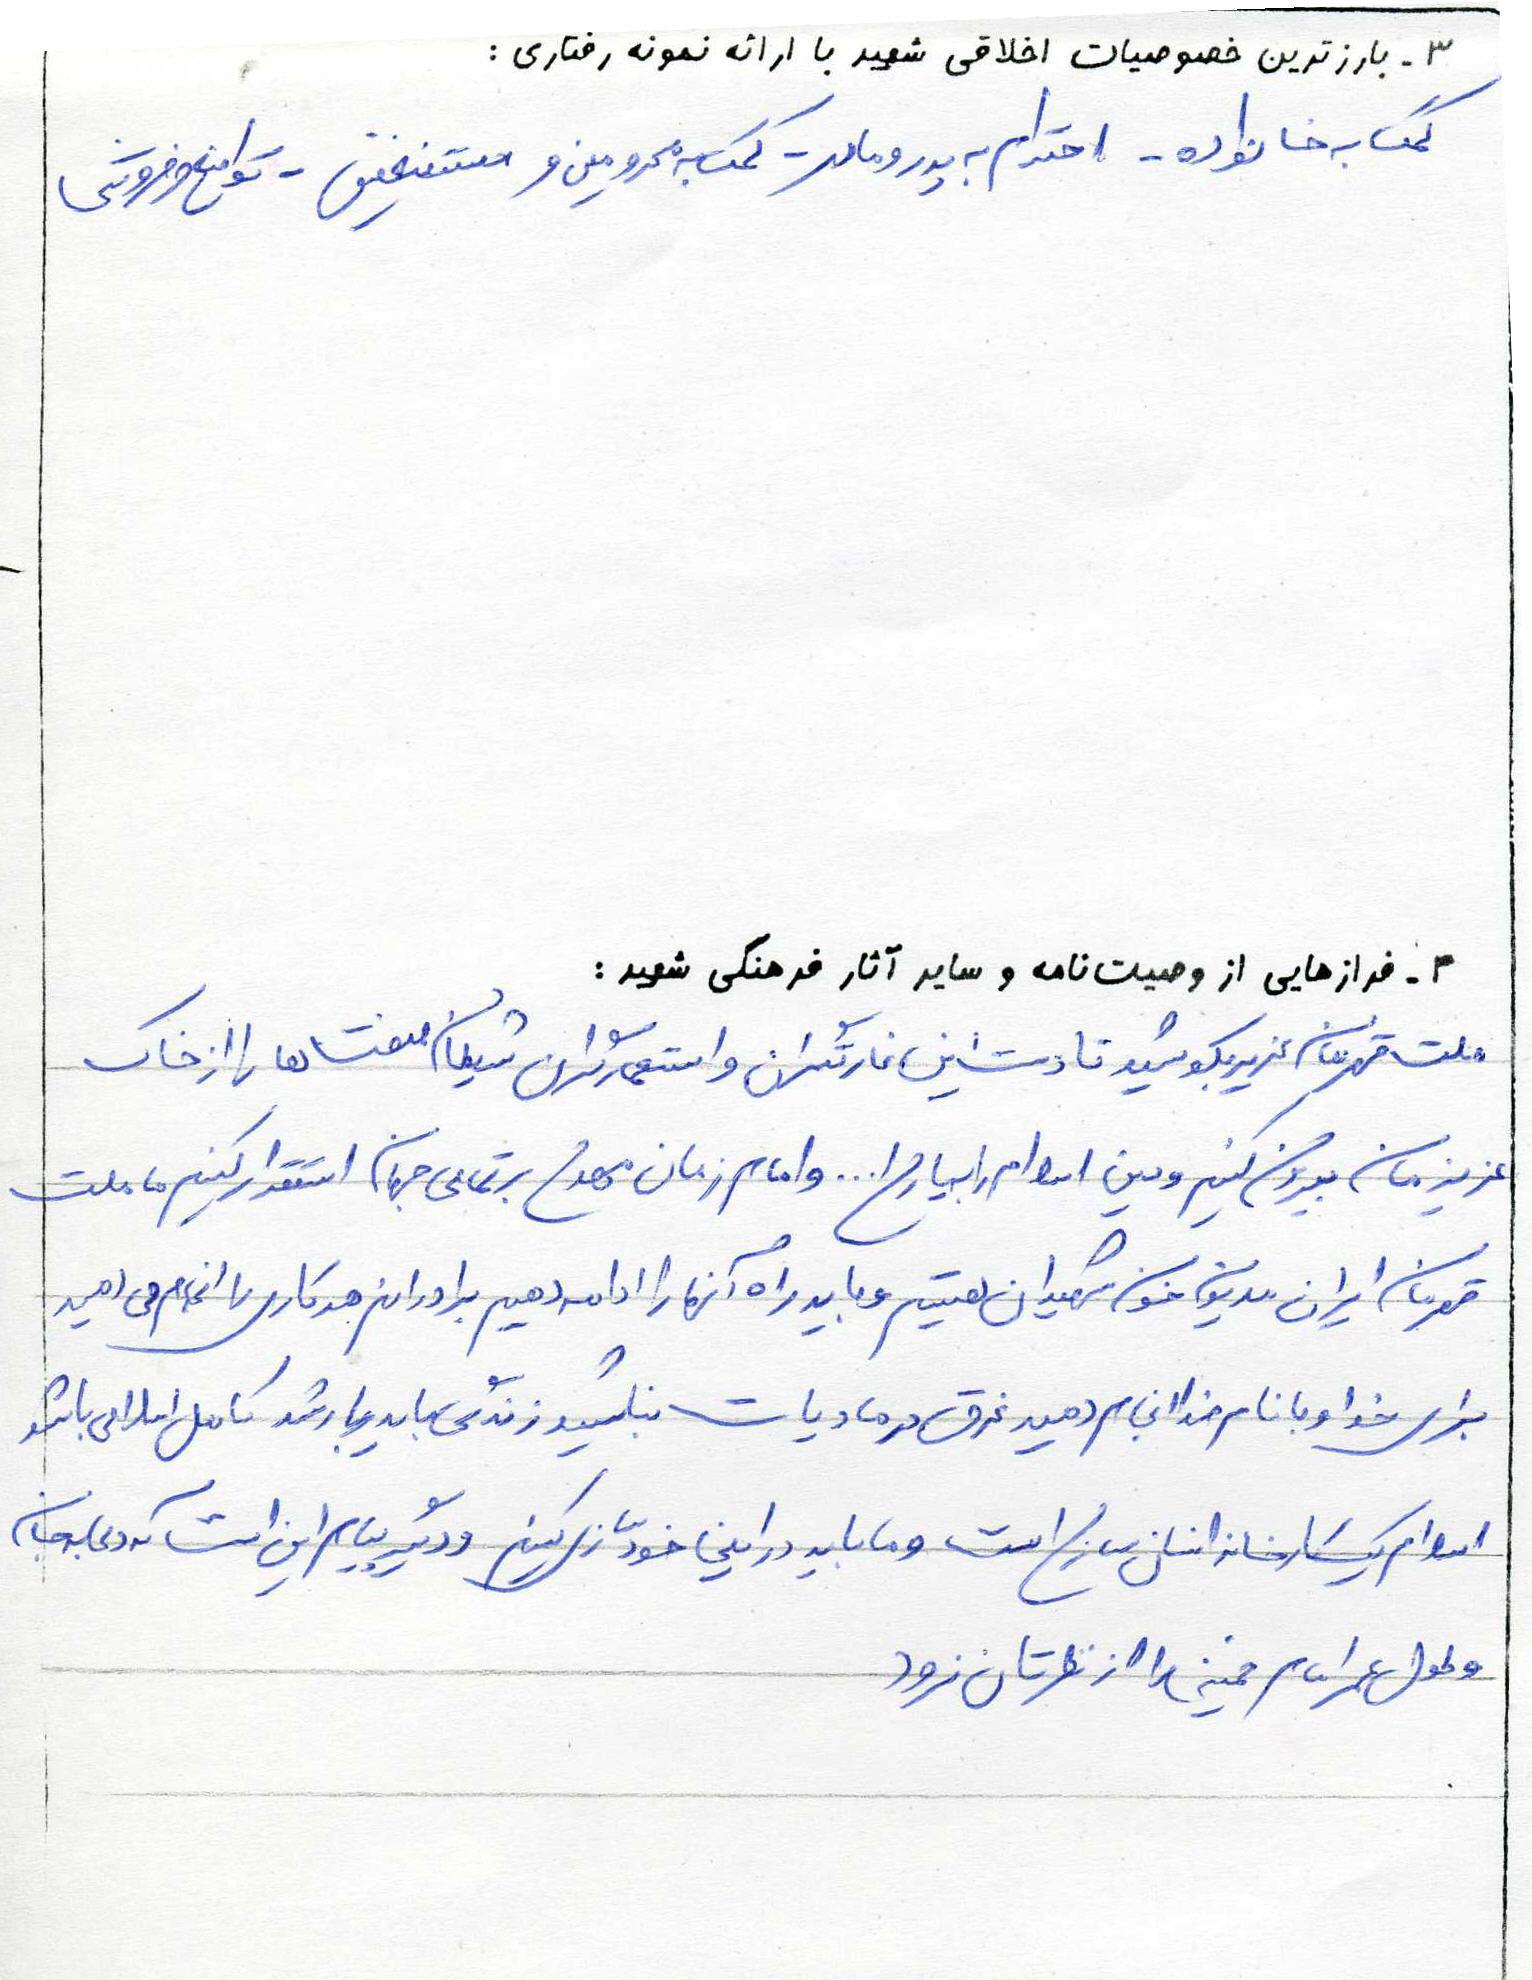 ۳ - بارزترین خصوصیات اخلاقی شهید با ارائه نمونه رفتاری :
کمک به خانواده - احترام به پدر و مادر - کمک به محرومین و مستضعفین - تواضع و فروتنی
۴ - فرازهایی از وصیت‌نامه و سایر آثار فرهنگی شهید :
ملت قهرمان عزیز بکوشید تا دست این غارتگران و استعمارگران شیطان صفت‌ها را از خاک
عزیزمان بیرون کنیم و دین اسلام را بیاری ا... و امام زمان مهدی بر تمامی جهان استقرار کنیم ما ملت
قهرمان ایران مدیون خون شهیدان هستیم و باید راه آنها را ادامه دهیم برادرانم هر کاری را انجام می دهید
برای خدا و با نام خدا انجام دهید غرق در مادیات نباشید زندگی باید بارشد کامل اسلامی باشد
اسلام یک کارخانه انسان سازی است و ما باید در اینجا خودسازی کنیم و دیگر پیام این است که دعا به جان
و طول عمر امام خمینی را از نظرتان نرود